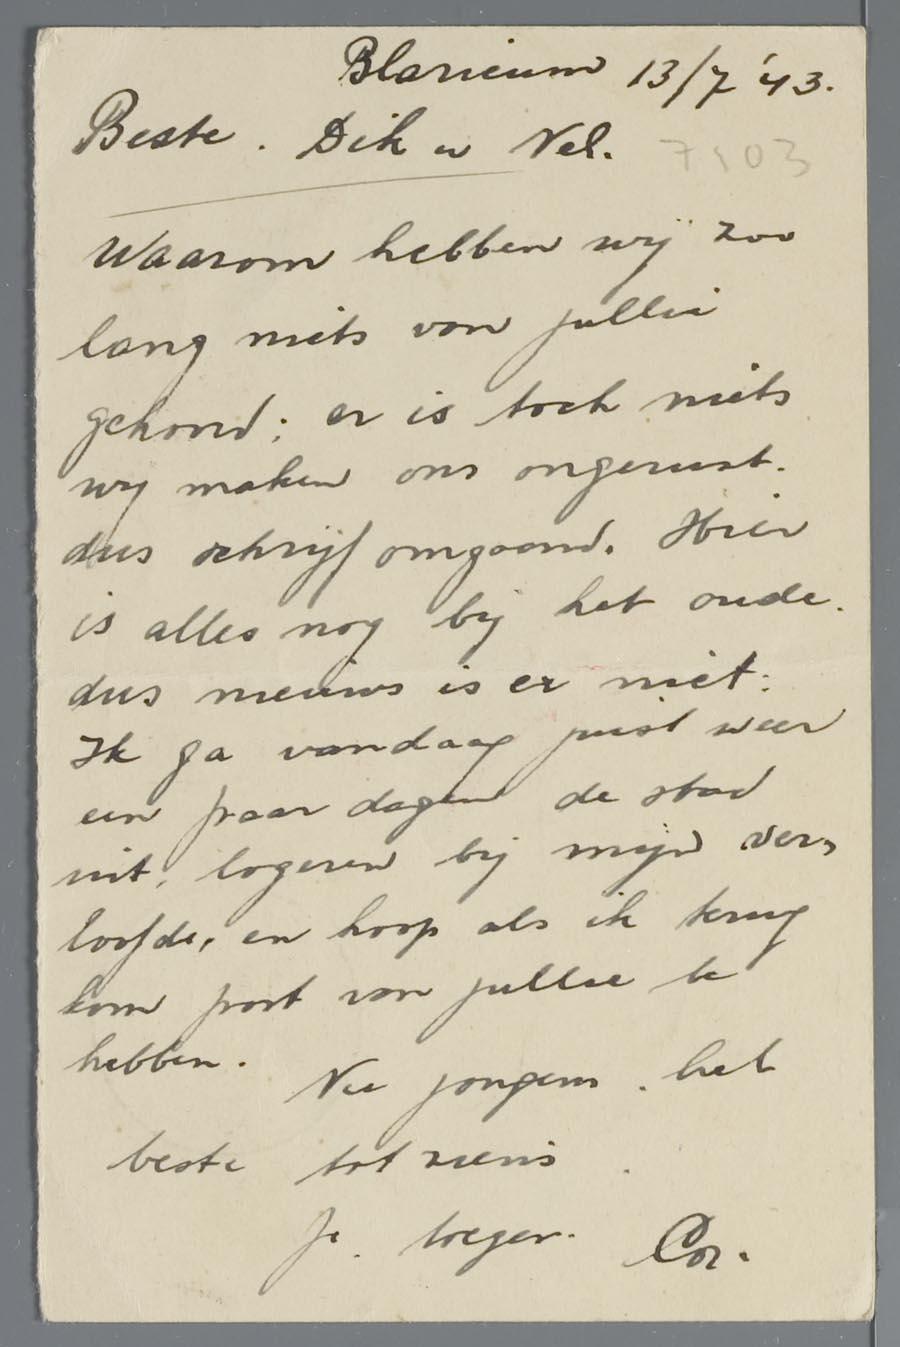 Blaricum 13/7 '43.
Beste. Dik en Nel.
7503
Waarom hebben wij zoo
lang niets van jullie
gehoord; er is toch niets
wij maken ons ongerust.
dus schrijf omgaand. Hier
is alles nog bij het oude.
dus nieuws is er niet.
Ik ga vandaag juist weer
een paar dagen de stad
uit, logeren bij mijn ver,
loofde, en hoop als ik terug
kom post van jullie te
hebben.
Nu jongens. het
beste tot ziens
Je. Cor.